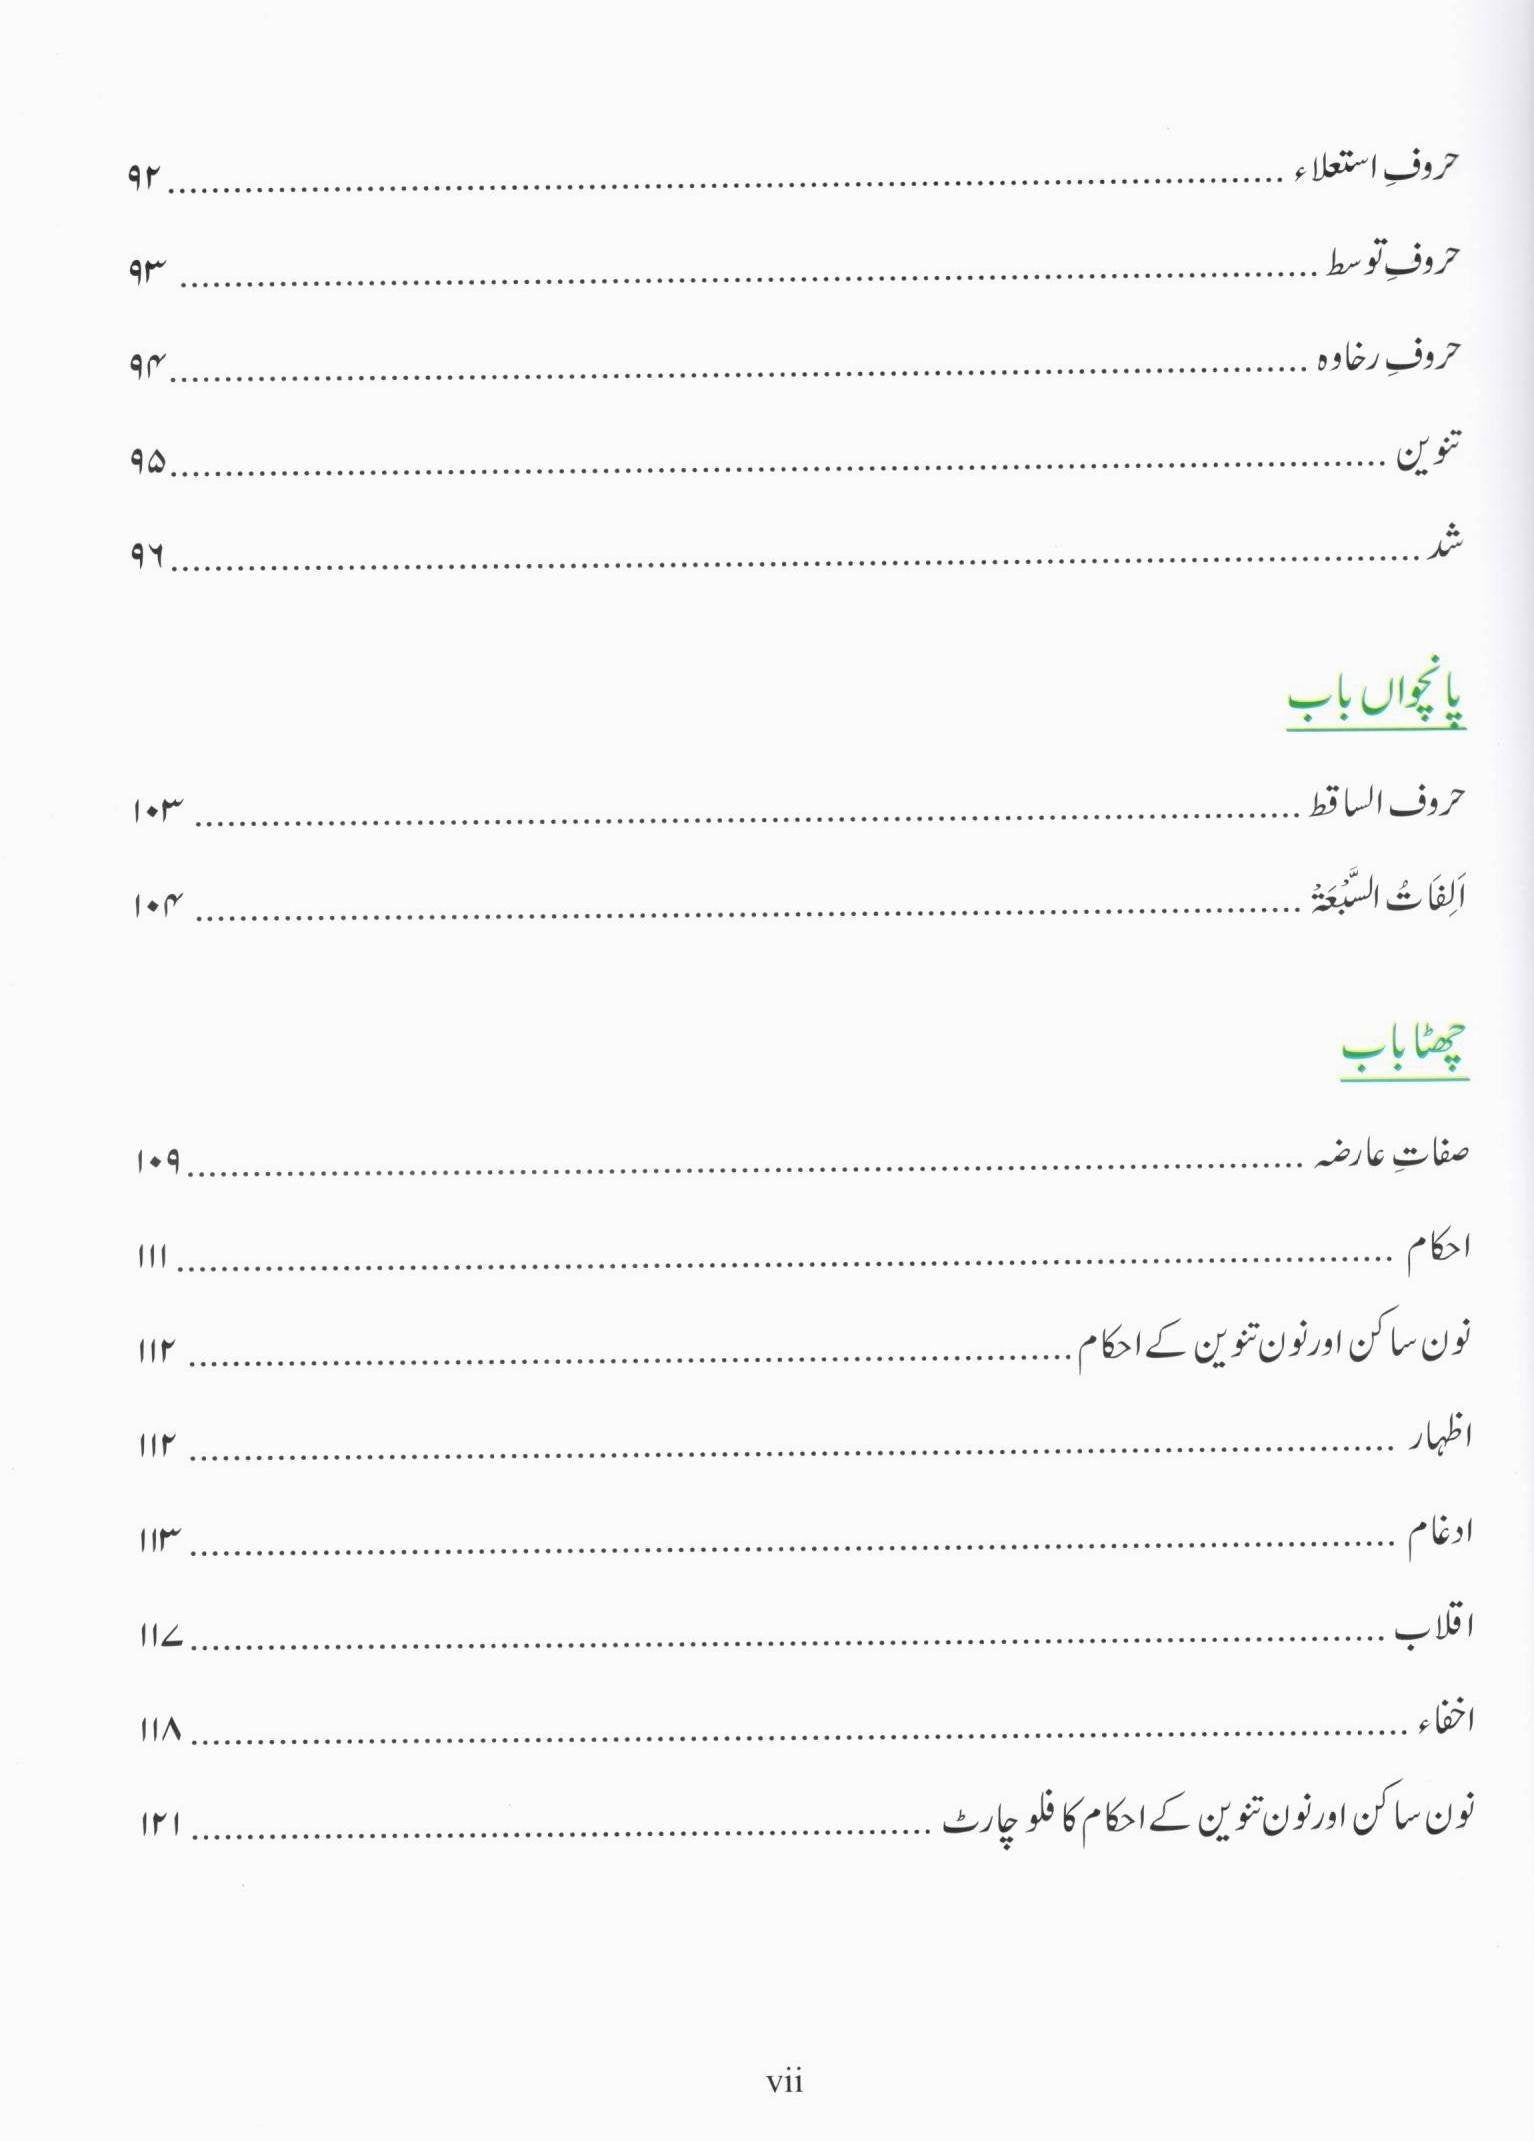 حروفِ استعلاء ........ ۹۲
حروفِ توسط ........ ۹۳
حروفِ رخاوہ ........ ۹۴
تنوین ........ ۹۵
شد ........ ۹۶
پانچواں باب
حروف الساقط ........ ۱۰۳
اَلِفَاتُ السَّبْعَۃْ ........ ۱۰۴
چھٹا باب
صفاتِ عارضہ ........ ۱۰۹
احکام ........ ۱۱۱
نون ساکن اور نون تنوین کے احکام ........ ۱۱۲
اظہار ........ ۱۱۲
ادغام ........ ۱۱۳
اقلاب ........ ۱۱۷
اخفاء ........ ۱۱۸
نون ساکن اور نون تنوین کے احکام کا فلو چارٹ ........ ۱۲۱
vii